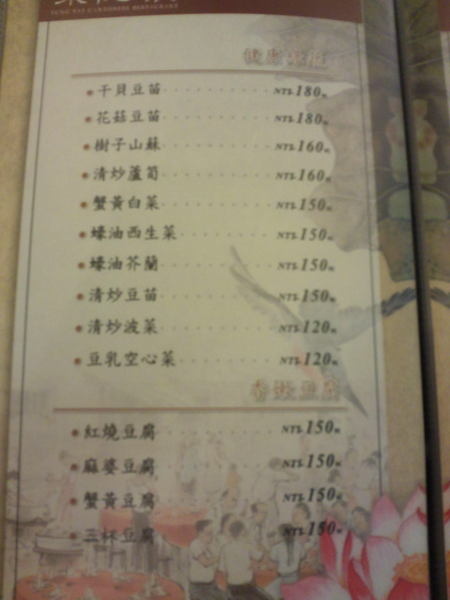 CANTONESE RESTAURANT
干貝豆苗 NT$180元
花菇豆苗 NT$180元
樹子山蘇 NT$160元
清炒蘆筍 NT$160元
蟹黃白菜 NT$150元
蠔油西生菜 NT$150元
蠔油芥蘭 NT$150元
清炒豆苗 NT$150元
清炒波菜 NT$120元
豆乳空心菜 NT$120元
豆腐
紅燒豆腐 NT$150元
麻婆豆腐 NT$150元
蟹黃豆腐 NT$150元
三杯豆腐 NT$150元